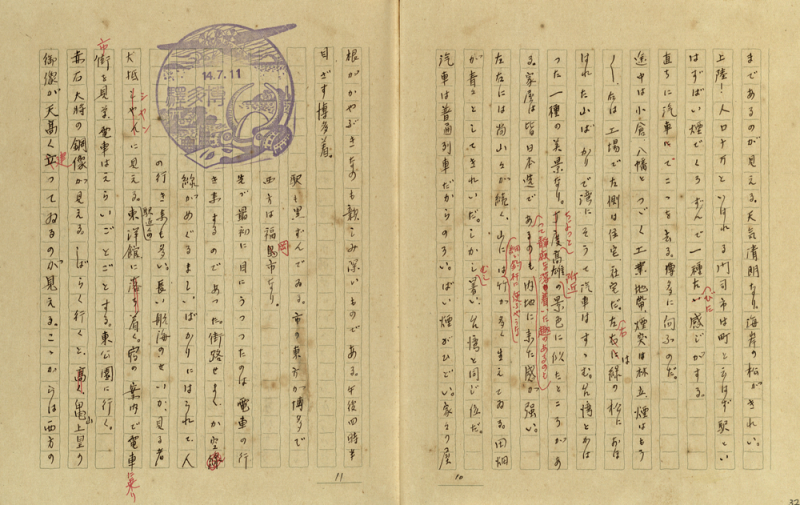 まであるのが見える。天気清朗なり。海岸の松がきれい。
上陸！人口十万といはれる門司市は町と云はず駅とい
はずばい煙でくろずんで一種ひたい感じがする。
直ちに汽車にてここを去る。博多に向ふのだ。
途中は小倉、八幡とつづく工業地帯、煙突は林立、煙はもう
〳〵、たは工場で左側は住宅社宅だ。左右は緑の松におほ
はれた山ばかりで湾にそうて汽車はすゝむ。台湾とかは
った一種の美景なり。ちょっと高雄附近の景色に似たところがあ
る。家屋は皆日本造であるのも内地に来た感が強い。
左右には岡山々が続く。山には竹が多く生えてゐる。田畑
が青々としてきれいだ。しかしむし暑い。台湾と同じ位だ。
汽車は普通列車だからのろい。ばい煙がひどい。家々の屋
10
根がかやぶきなのも親しみ深いものである。午後四時半
目ざす博多着。
駅も黒ずんでゐる。市の東方が博多で
西方は福岡市なり。
先づ最初に目にうつったのは電車の行
き来するのであった。街路せまく、か空線
線がめぐるましいばかりにはられて人
の行き来も多い。長い航海のせいか、見る者
大抵シヤンに見える。駅近く東洋館に落ち着く。宿の案内で電車乗り
市街を見る。電車はえらいごとごとする。東公園に行く。
赤石大将の銅像が見える。しばらく行くと、亀山上皇の
御像が天高く立って ゐるのが見える。ここからは西方の
11
14.7.11
博多駅
32